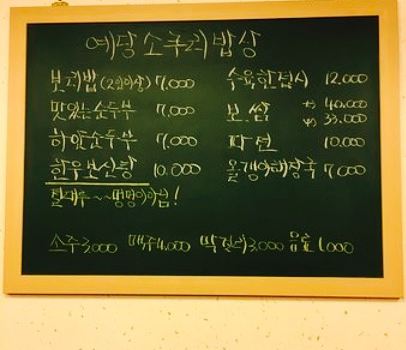 예당소쿠리밥상
보리밥(2인이상) 7,000 수육한접시 12,000
맛있는순두부 7,000 보쌈 大 40,000
小 33,000
하얀순두부 7,000 파전 10,000
한우보신탕 10,000 올갱이해장국 7,000
절대루~~멍멍이아님!
소주3,000 맥주4,000 막걸리3,000 음료1,000